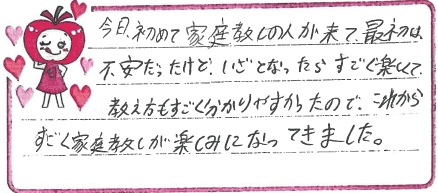 今日、初めて家庭教しの人が来て、最初は、
不安だったけど、いざとなったらすごく楽しくて、
教え方もすごく分かりやすかったので、これから
すごく家庭教しが楽しみになってきました。